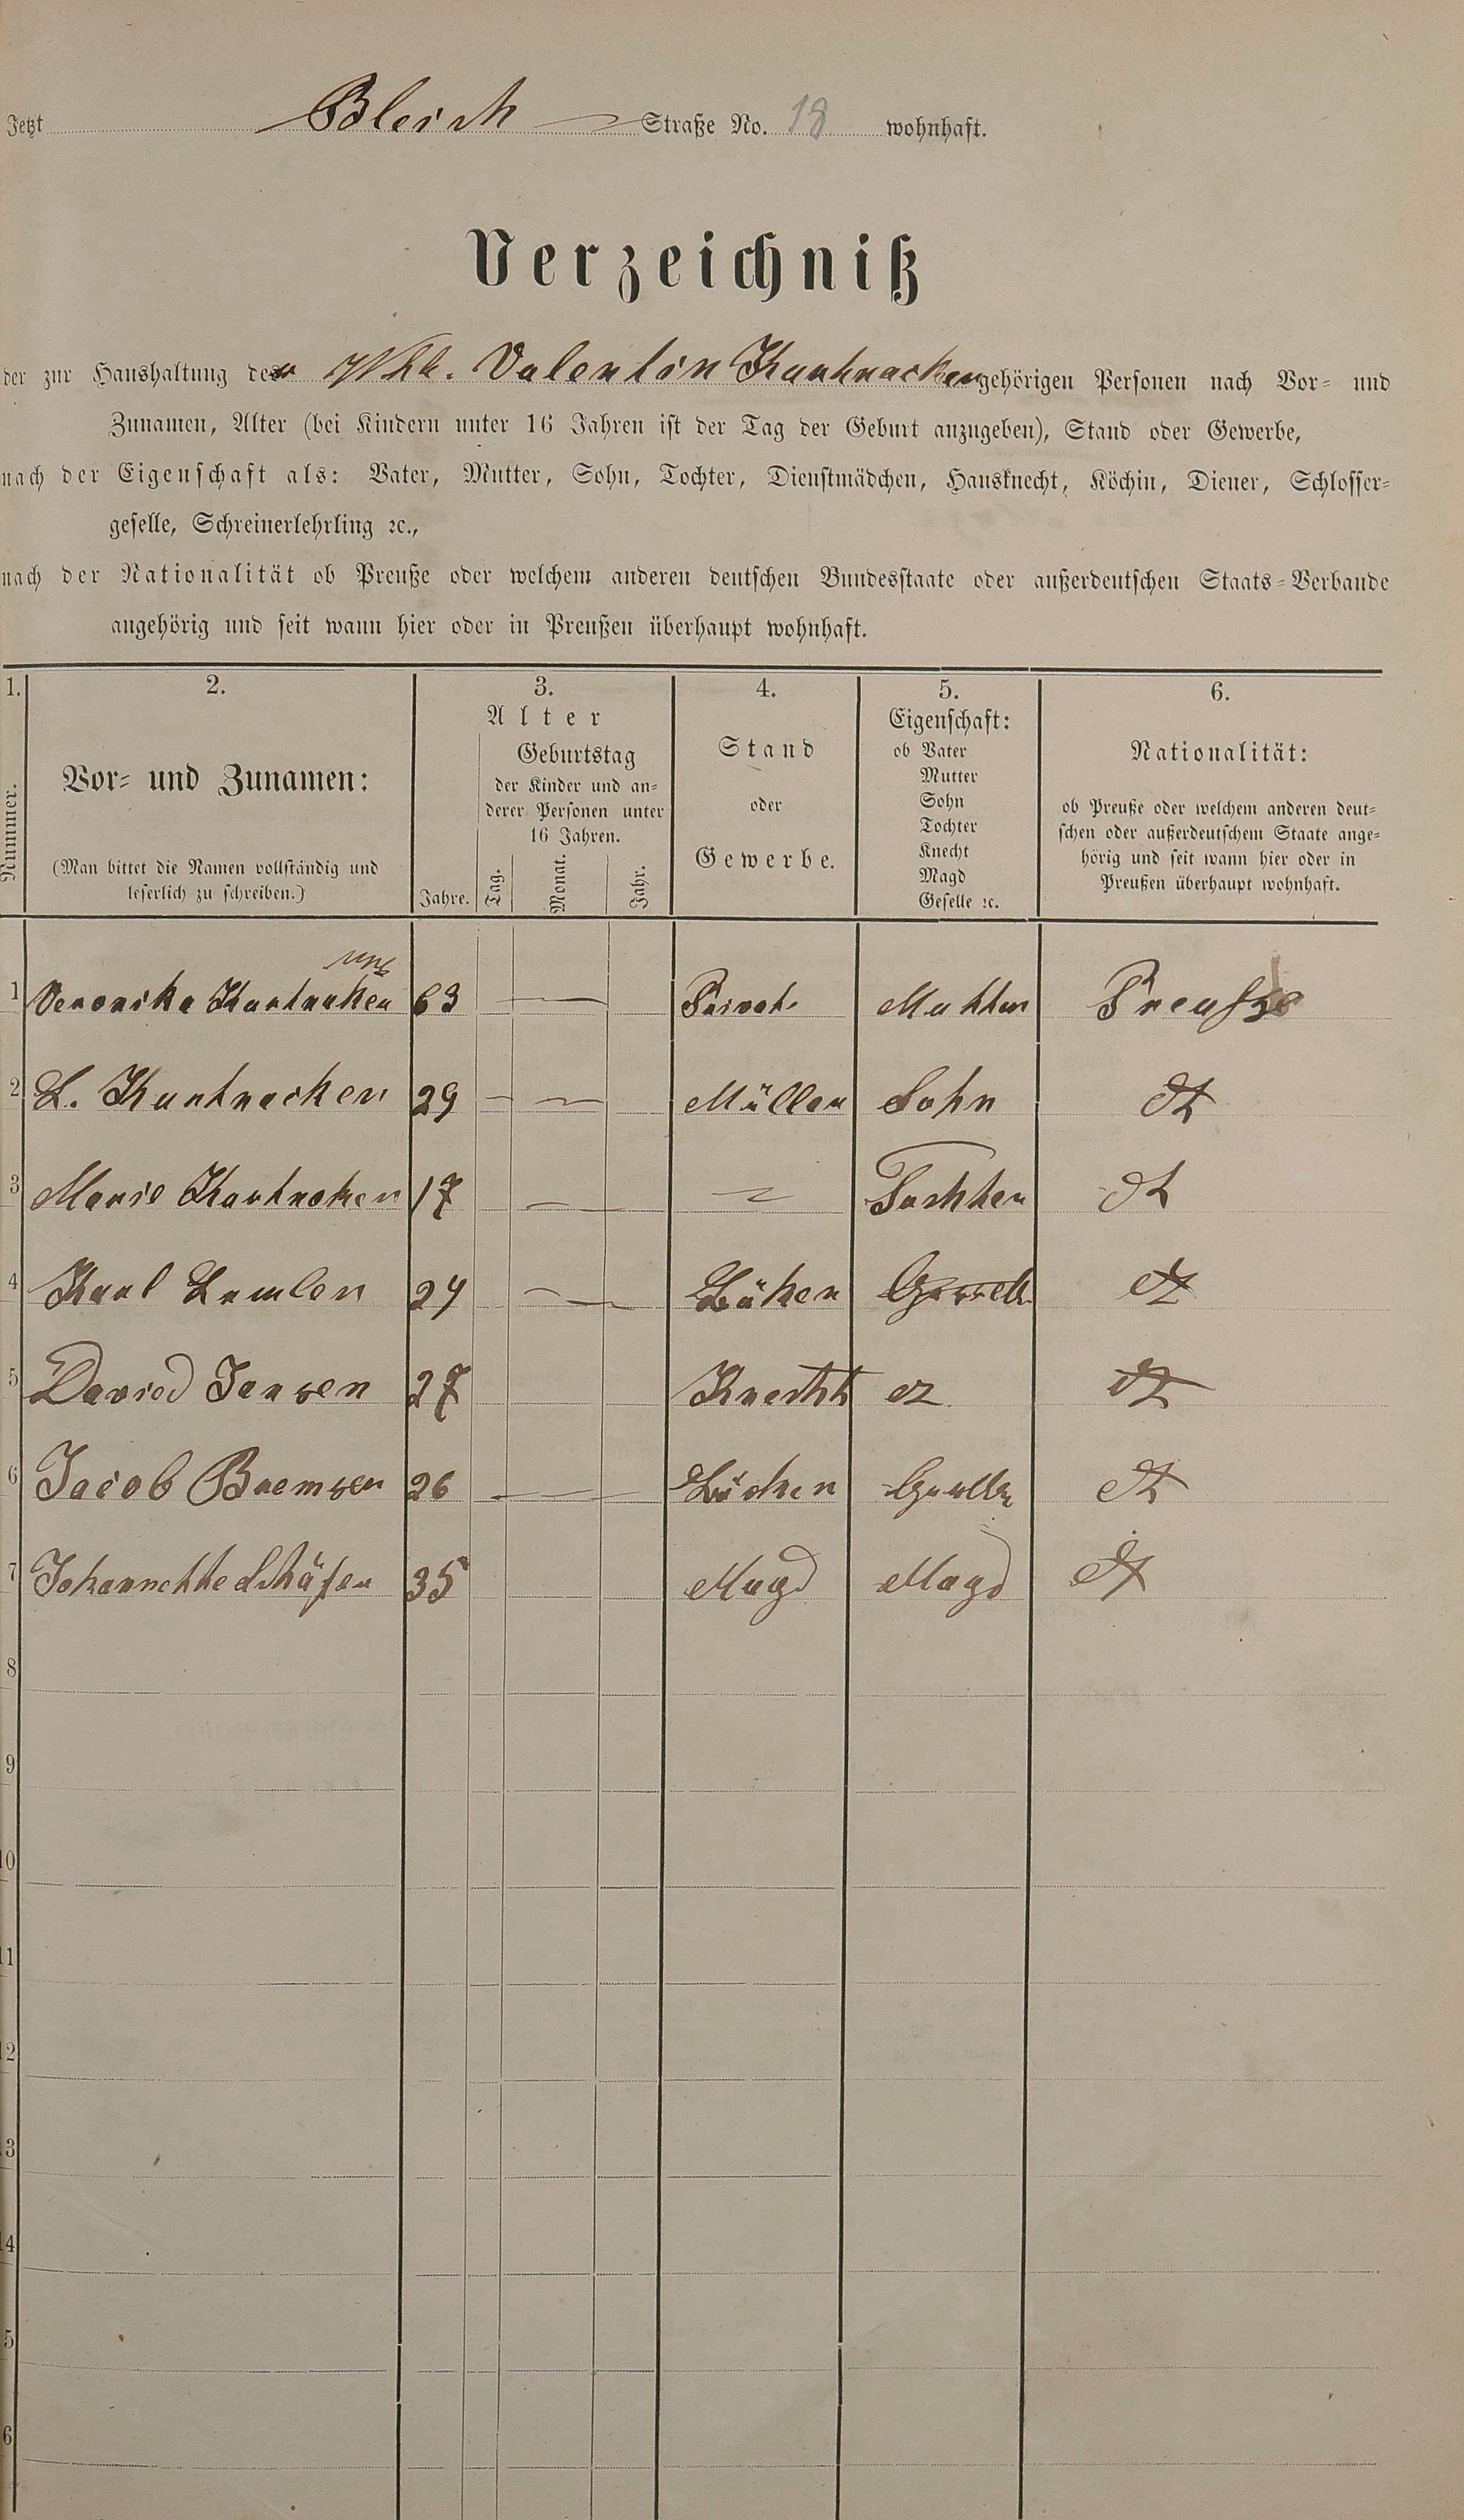 Jetzt Bleich Straße No. 18 wohnhaft.
Verzeichniß
der zur Haushaltung der Wbb. Valentin Kartnacker gehörigen Personen nach Vor- und
Zunamen, Alter (bei Kindern unter 16 Jahren ist der Tag der Geburt anzugeben), Stand oder Gewerbe,
nach der Eigenschaft als: Vater, Mutter, Sohn, Tochter, Dienstmädchen, Hausknecht, Köchin, Diener, Schlosser-
geselle, Schreinerlehrling ꝛc.,
nach der Nationalität ob Preuße oder welchem anderen deutschen Bundesstaate oder außerdeutschen Staats-Verbande
angehörig und seit wann hier oder in Preußen überhaupt wohnhaft.
1. 2. 3. 4. 5. 6.
Nummer.
Vor- und Zunamen:
(Man bittet die Namen vollständig und
leserlich zu schreiben.)
Alter
Jahre.
Geburtstag
der Kinder und an-
derer Personen unter
16 Jahren.
Tag. Monat. Jahr.
Stand
oder
Gewerbe.
Eigenschaft:
ob Vater
Mutter
Sohn
Tochter
Knecht
Magd
Geselle ꝛc.
Nationalität:
ob Preuße oder welchem anderen deut-
schen oder außerdeutschem Staate ange-
hörig und seit wann hier oder in
Preußen überhaupt wohnhaft.
1 Veronika Kartnaker 63 — Privat. Mutter Preuße
2 L. Kartnacker 29 — — Müller Sohn dt
3 Marie Kartnaker 17 — — Tochter dt
4 Karl 24 — Bäker Geselle dt
5 David Jansen 27 Knecht dt
6 Jacob Bremser 26 — Bäcker Geselle dt
7 Johannette Schäfer 35 Magd Magd dt
8
9
10
11
12
13
14
5
6